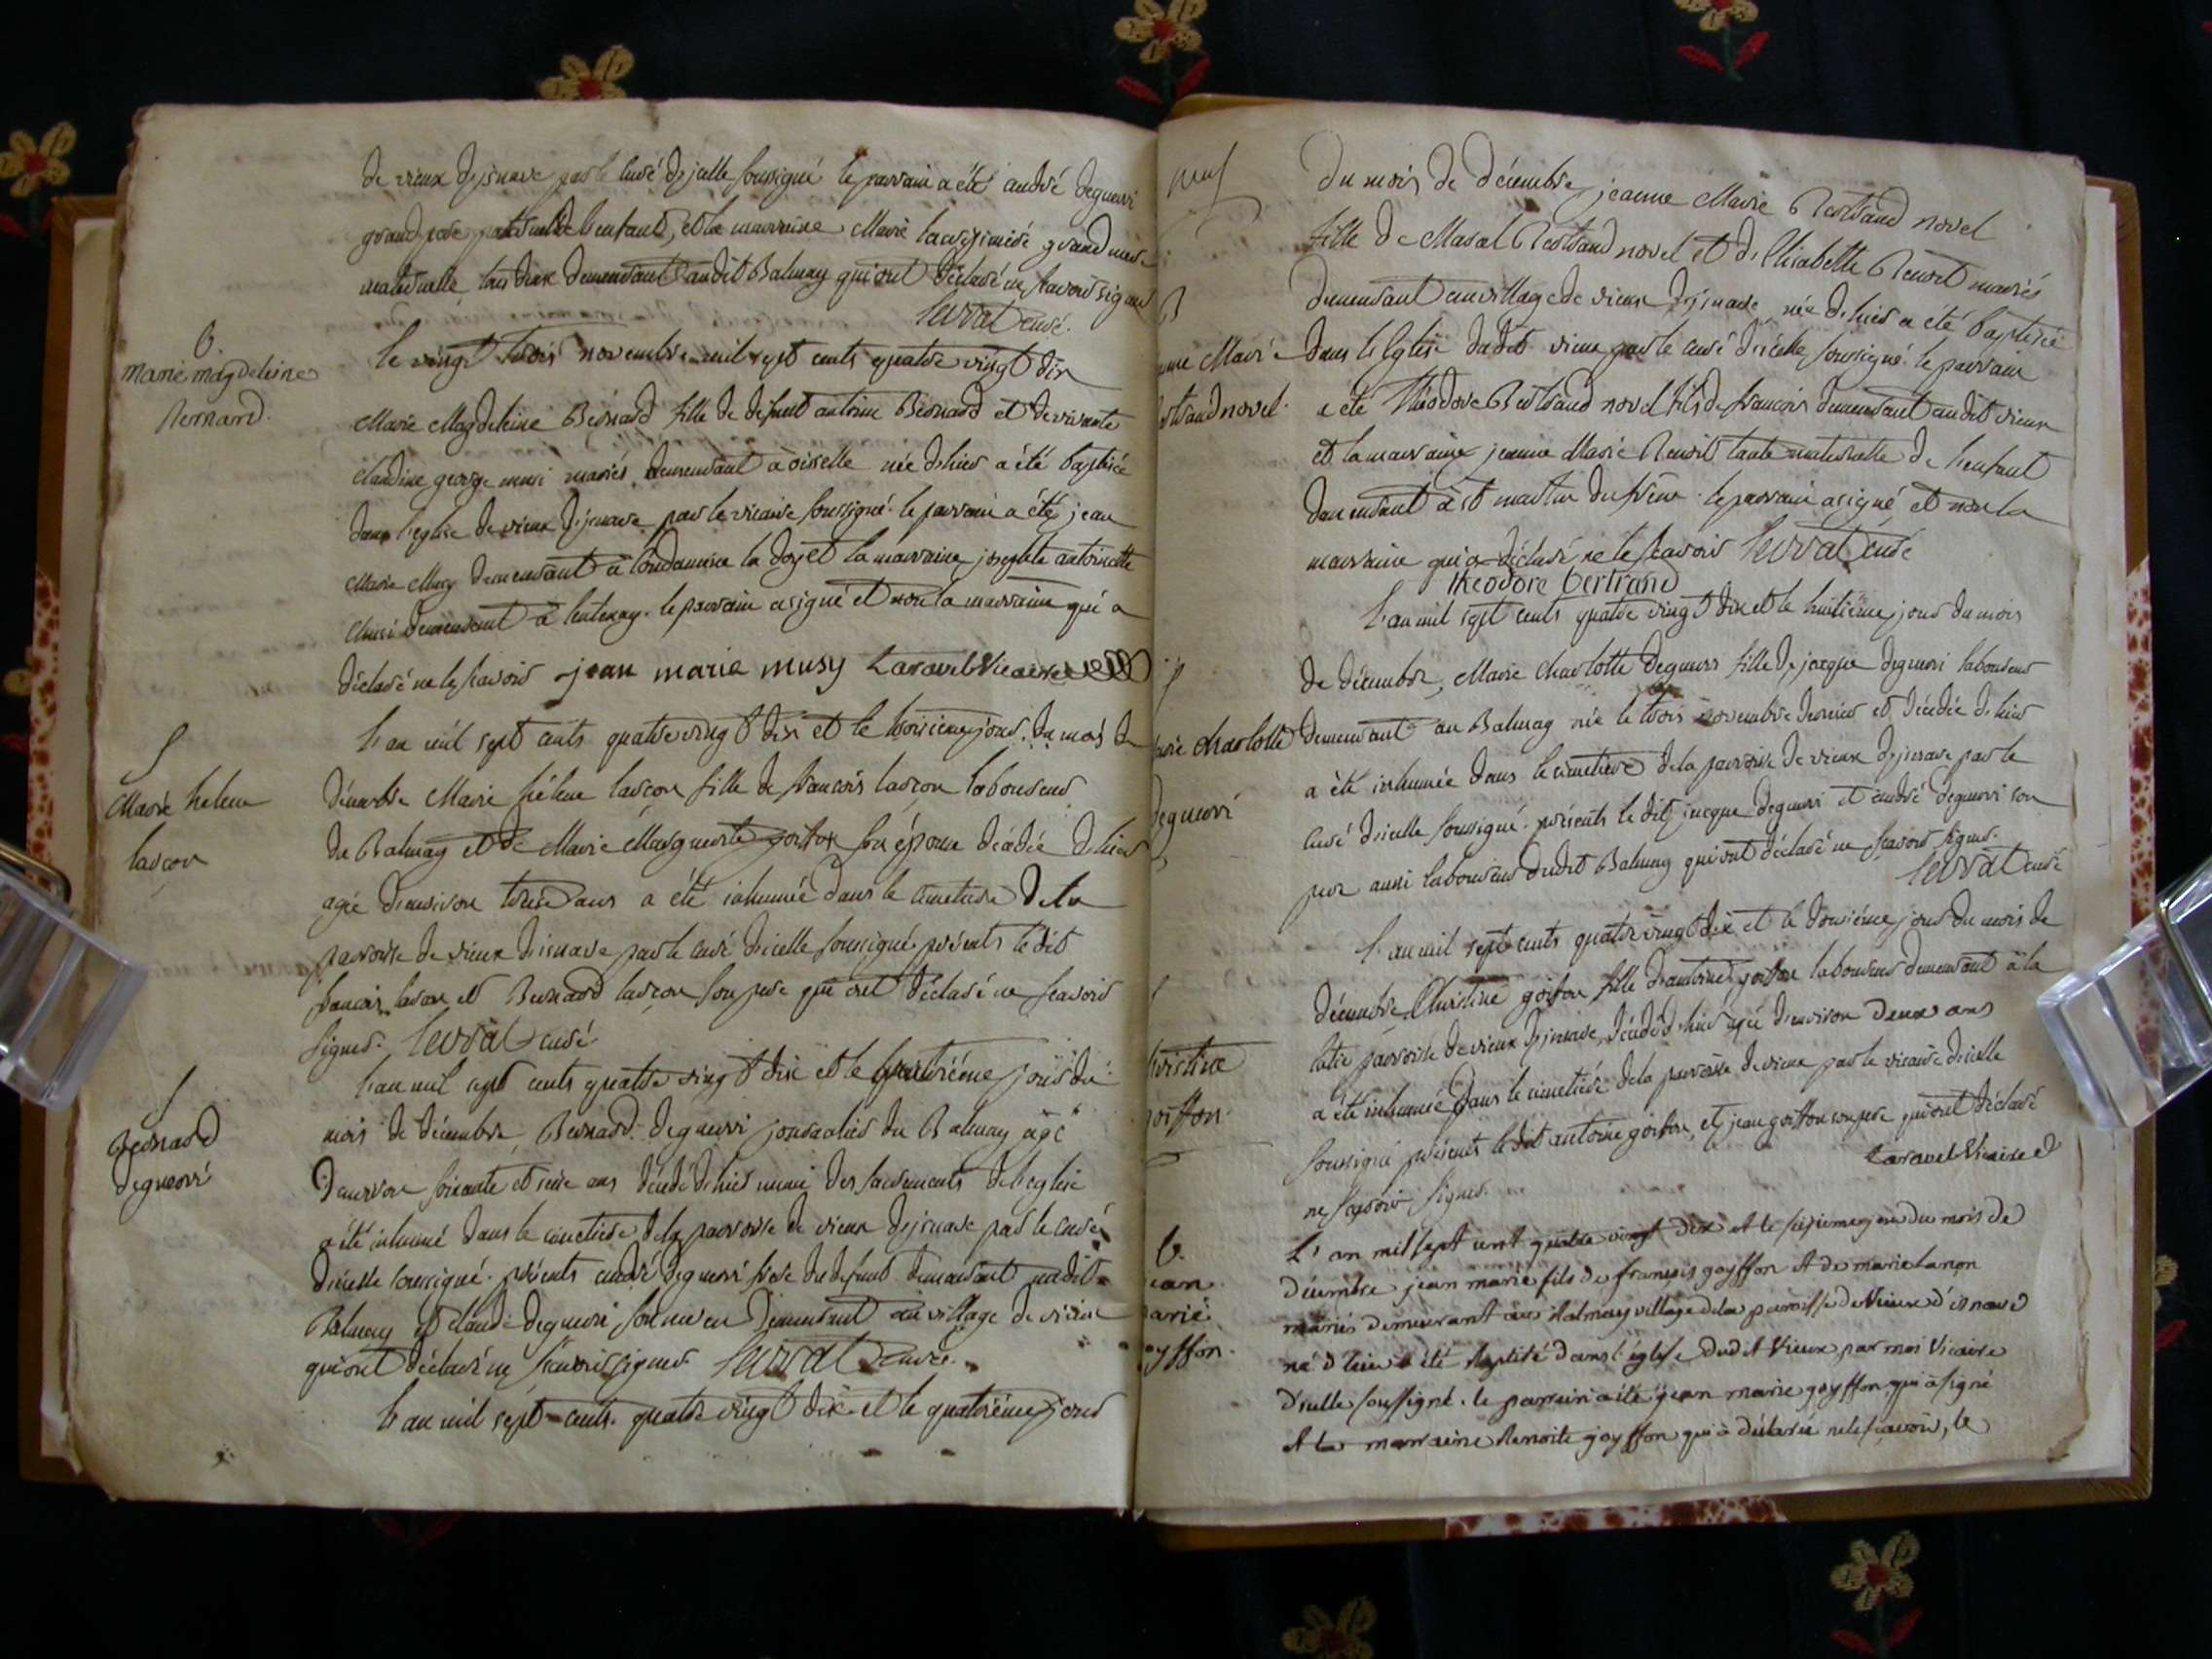 de vieux disnave par le curé d'jcelle soussigné le parrain a été andré deguerri
grand pere paternel de l'enfant, et la marraine Marie grand mere
maternelle tous deux demeurant audit Balmay qui ont déclaré ne sçavoir signer
Levrat curé.
B.
marie magdeleine
Bernard.
le vingt trois novembre mil sept cents quatre vingt dix
Marie Magdeleine Bernard fille de defunt antoine Bernard et de vivante
claudine george musi mariés demeurant à oisselle née d'hier a été baptisée
dans l'eglise de vieux d'jsnave par le vicaire soussigné. le parrain a été jean
Marie Musy demeurant à Condamine la doy et la marraine josephte antoinette
Musi demeurant à lentenay. le parrain a signé et non la marraine qui a
déclaré ne le sçavoir jean marie musy Laravel Vicaire
S
Marie helene
lasçon
l'an mil sept cents quatre vingt dix et le troisieme jour du mois de
décembre Marie hélene lasçon fille de françois lasçon laboureur
du Balmay et de Marie Marguerite goiffon son épouse décédée d'hier
agée d'environ treize ans a été inhumée dans le cimetiere de la
parroisse de vieux disnave par le curé dicelle soussigné présents le dit
françois lascon et Bernard lasçon son pere qui ont déclaré ne sçavoir
signer. Levrat curé
S
Bernard
deguerri
l'an mil sept cents quatre vingt dix et le quatrième jour du
mois de décembre Bernard deguerri journalier du Balmay agé
d'environ soixante et seize ans décédé d'hier muni des sacrements de l'eglise
a été inhumé dans le cimetiere de la parroisse de vieux d'jsnave par le curé
dicelle soussigné. présents andré deguerri frere du defunt demeurant audit
Balmay et claude deguerri son neveu demeurant au village de vieux
qui ont déclaré ne sçavoir signer. Levrat curé.
l'an mil sept cents quatre vingt dix et le quatrième jour
du mois de décembre jeanne Marie Bertrand novel
fille de Bertrand novel et d'Elisabette Benoit mariés
B
Marie
Bertrand novel.
demeurant au village de vieux d'jsnave, née d'hier a été baptisée
dans l'Eglise dudit vieux par le curé d'icelle soussigné. le parrain
a été théodore Bertrand novel fils de françois demeurant audit vieux
et la marraine jeanne Marie Benoit tante maternelle de l'enfant
demeurant à st martin du frêne. le parrain a signé et non la
marraine qui a déclaré ne le sçavoir Levrat curé
theodore bertrand
l'an mil sept cents quatre vingt dix et le huitième jour du mois
Marie charlotte
deguerri
de décembre, Marie charlotte deguerri fille de jacque deguerri laboureur
demeurant au Balmay née le trois novembre dernier et décédée d'hier
a été inhumée dans le cimetiere de la parroisse de vieux d'jsnave par le
curé d'icelle soussigné. présents le dit jacque deguerri et andré deguerri son
pere aussi laboureur dudit Balmay qui ont déclaré ne sçavoir signer.
Levrat curé
l'an mil sept cents quatre vingt dix et le douzième jour du mois de
christine
goiffon.
décembre Christine goiffon fille d'antoine goiffon laboureur demeurant à la
parroisse de vieux d'jsnave, décédée d'hier agée d'environ deux ans
a été inhumée dans le cimetiere de la parroisse de vieux par le vicaire dicelle
soussigné présents le dit antoine goiffon, et jean goiffon son pere qui ont déclaré
ne sçavoir signer. Laravel Vicaire
b.
jean
marie
goyffon.
L'an mil sept cent quatre vingt dix et le seizieme jour du mois de
décembre jean marie fils de françois goyffon et de marie
mariés demeurant au Balmay village de la paroisse de Vieux d'isnave
né d'hier a été baptisé dans l'église dudit Vieux par moi Vicaire
d'icelle soussigné. le parrain a été jean marie goyffon qui a signé
et la marraine Benoite goyffon qui a déclaré ne le sçavoir, le